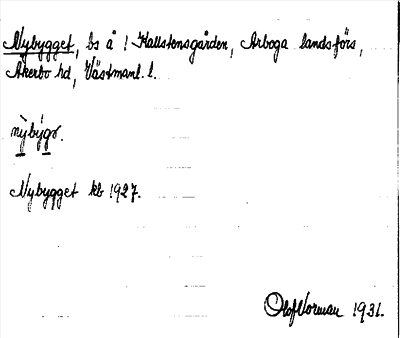 Nybygget, bs å 1 Kallstensgården, Arboga landsförs,
Åkerbo hd, Västmanl. l.
nỳbýgə.
Nybygget kb 1927.
Olof Norman 1931.